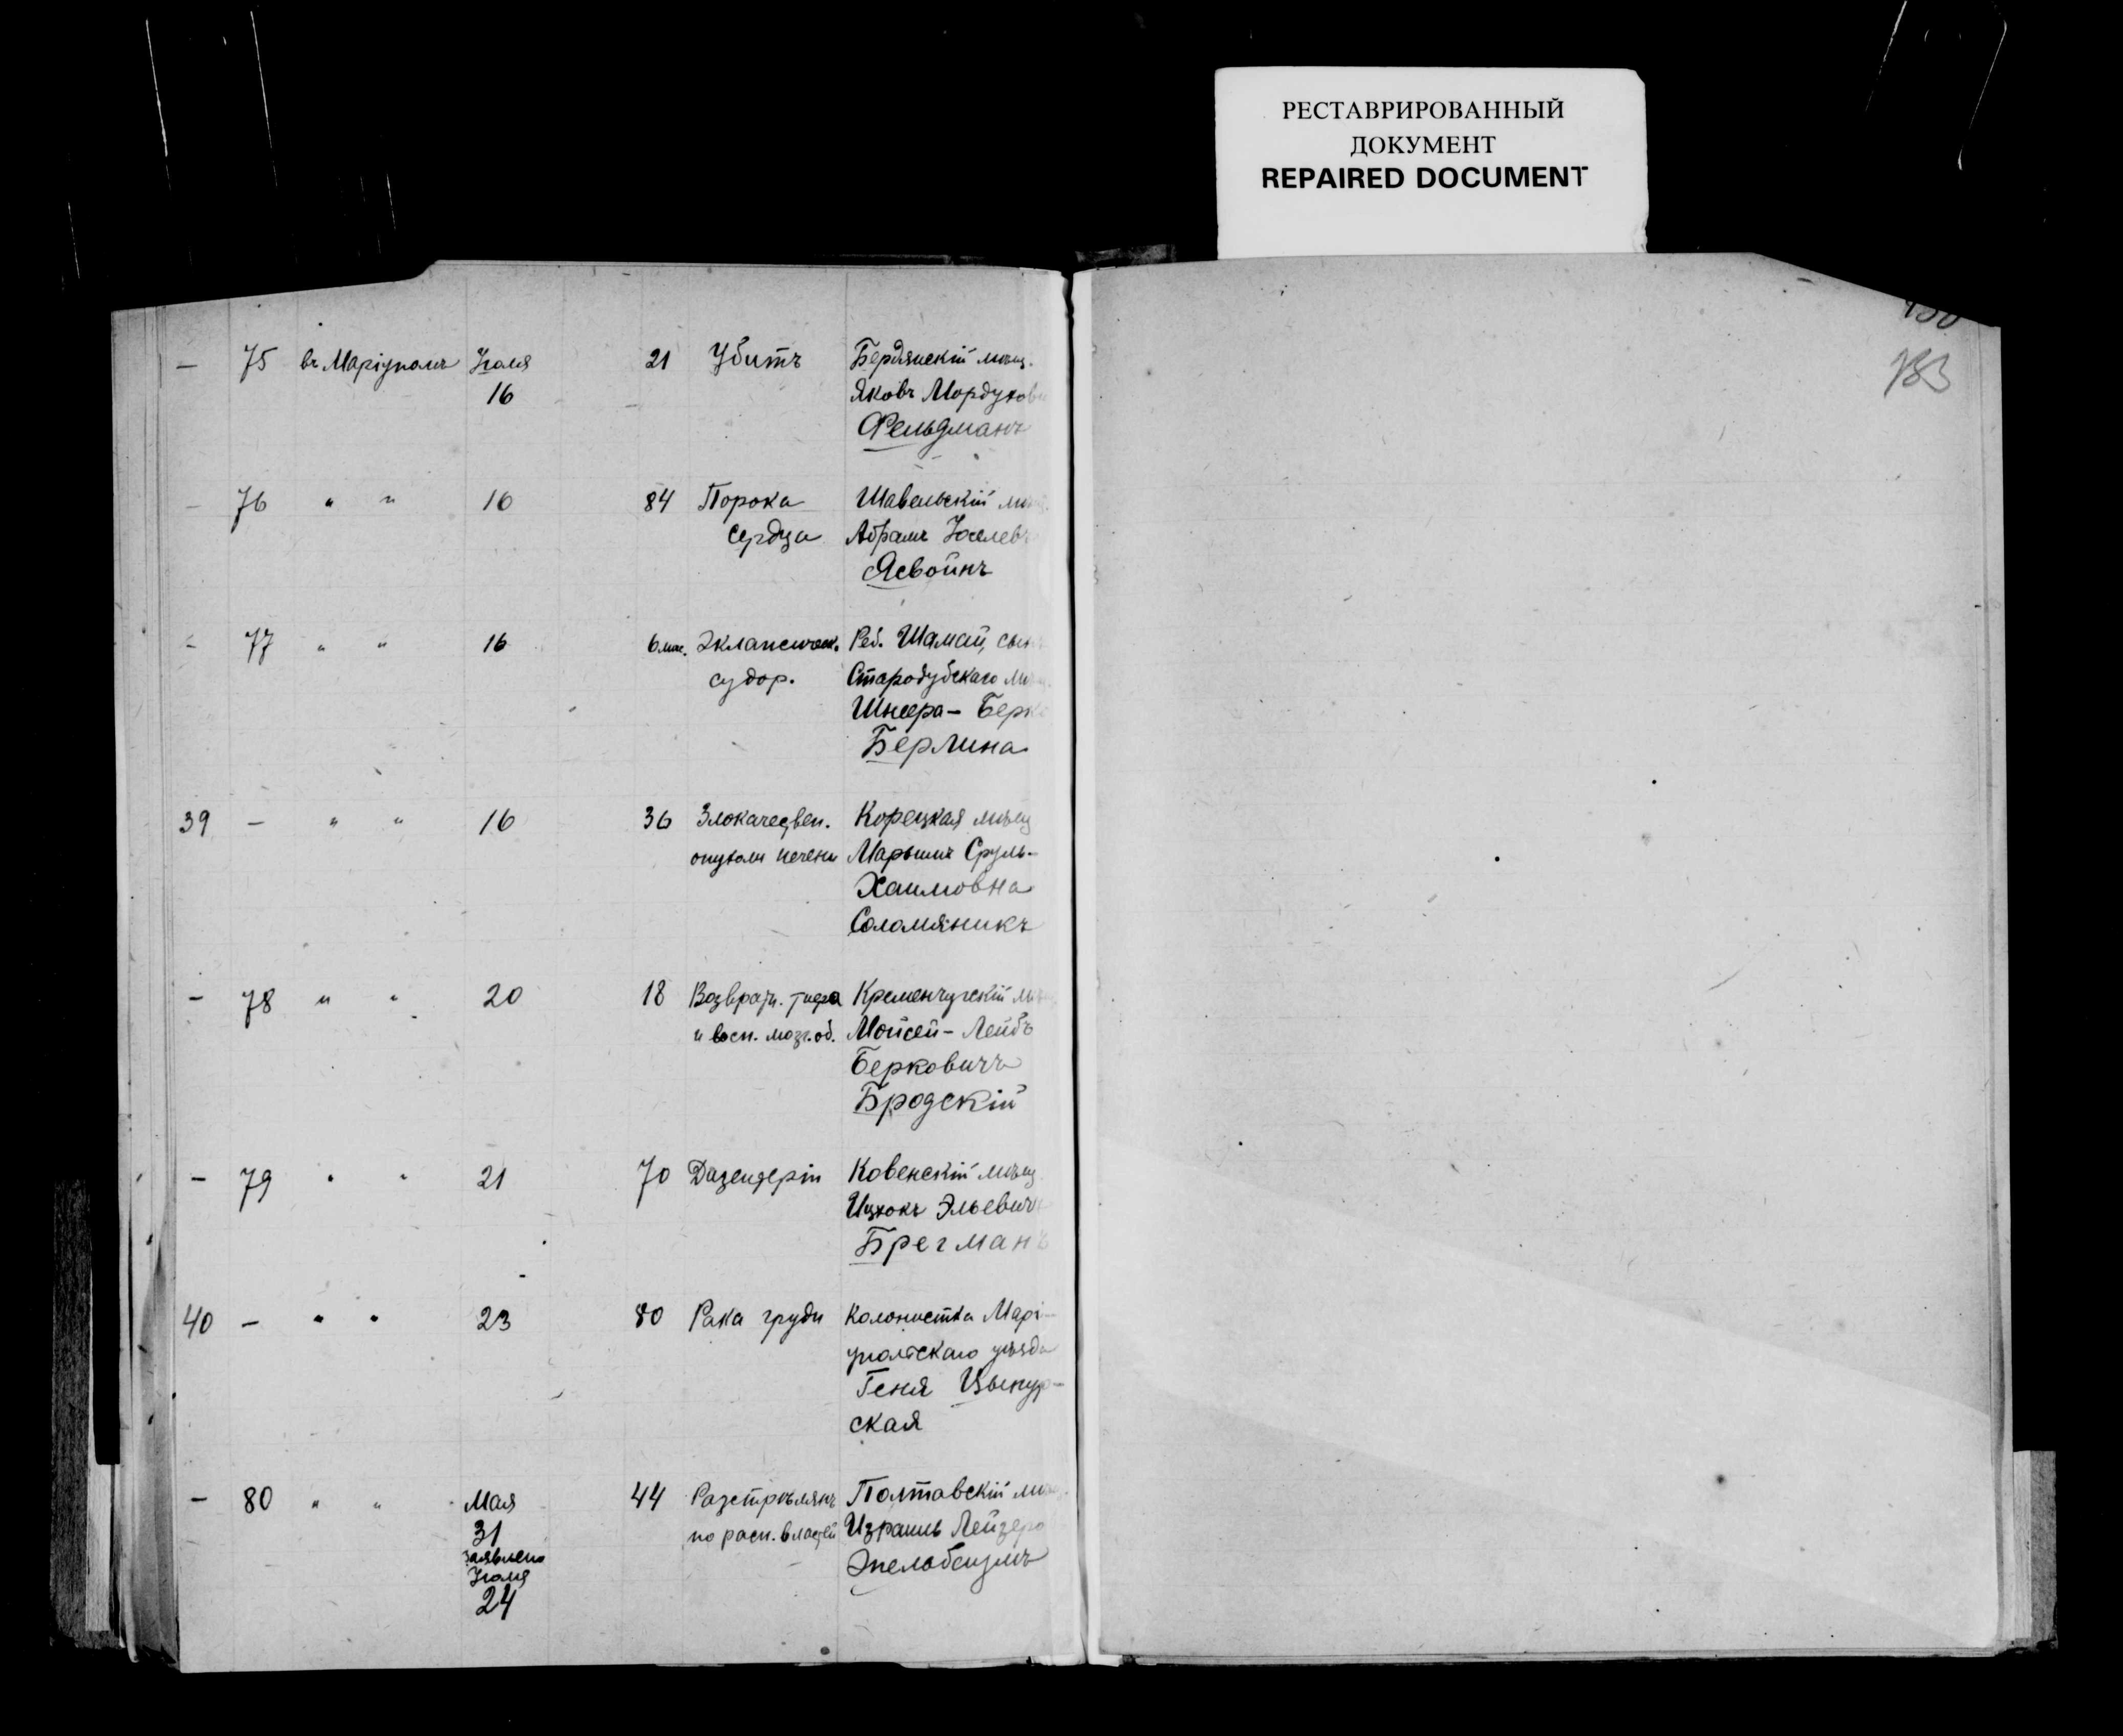 РЕСТАВРИРОВАННЫЙ
ДОКУМЕНТ
REPAIRED DOCUMENT
183
— 75 въ Маріуполѣ Іюля 21 Убитъ Бердянскій мѣщ.
16 Яковъ Мордухов
Фельдманъ
— 76 " " 16 84 Порока Шавельскій
сердца Абрамъ Іоселев
Ясвоинъ
- 77 " " 16 6 мѣс. Эклампсическ. Реб. Шамай, сын
судор. Стародубскаго
Шнеера- Берк
Берлина
39 — " " 16 36 Злокачествен. Корецкая мѣщ
опухоли печени Марьимъ Сруль-
Хаимовна
Соломяникъ
- 78 " " 20 18 Возвратн. тифа Кременчугскій
и восп. мозг. об. Мойсей- Лейбъ
Берковичъ
Бродскій
- 79 " " 21 70 Дизентеріи Ковенскій мѣщ
Ицхокъ Эльевичъ
Брегманъ
40 — " " 23 80 Рака груди Колонистка Марі-
упольскаго уѣзда
Геня Цыпур-
ская
— 80 " " Мая 44 Разстрѣлянъ Полтавскій
31 по расп. властей Израиль Лейзеро
заявлено
Эпельбеймъ
Іюля
24